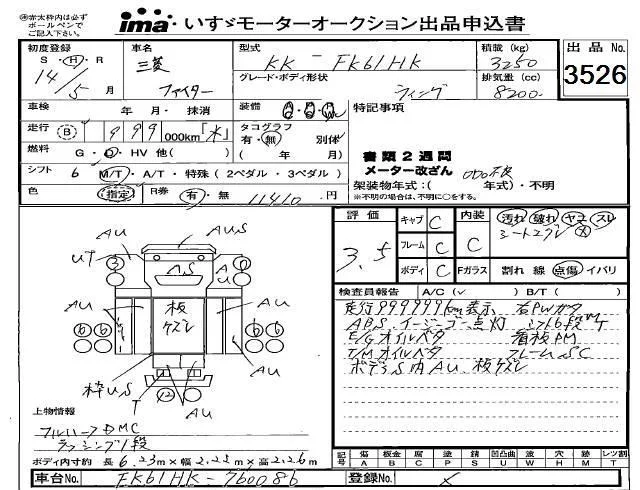 ㊟赤太枠内は必ず
ボールペンで
ご記入下さい。
ima いすゞモーターオークション出品申込書
初度登録 車名 型式 積載(kg) 出品No.
S・H・R 三菱 KK-FK61HK 3250 3526
14/5月 ファイター グレード・ボディ形状 ウィング 排気量(cc) 8200
車検 年 月・抹消 装備 特記事項
走行 B 999 000km「水」 タコグラフ 有・無 別体
燃料 G・D・HV 他( ) ( 年 月) 書類2週間
メーター改ざん
シフト 6 M/T・A/T・特殊(2ペダル・3ペダル) 架装物年式:( 年式)・不明
※不明の場合は、不明に○をする。
色 指定 R券 有・無 11410円
評価 3.5 キャブ C 内装 C 汚れ 破れ ヤユ スレ
フレーム C シートエグレ
ボディ C Fガラス 割れ 線 点傷 イバリ
検査員報告 A/C(✓ ) B/T( )
走行999999km表示 右PWガタ
ABS、イージーゴー点灯 シフト6段MT
E/Gオイルベタ 看板PM
T/Mオイルベタ フレームSC
ボデーS内AU、板ケズレ
AU AUS
UT 3 AS AU 0
AU 板ケズレ AU
6 6 6 6
枠US T 12 AU AU
上物情報
フルハーフDMC
ラッシング1段
記号 傷A 板金B 腐C 塗P 錆S 凹凸曲U 波W 穴H 痕M レT
ボディ内寸約 長6.23m×幅2.23m×高2.26m
車台No. FK61HK-760086 登録No. ×